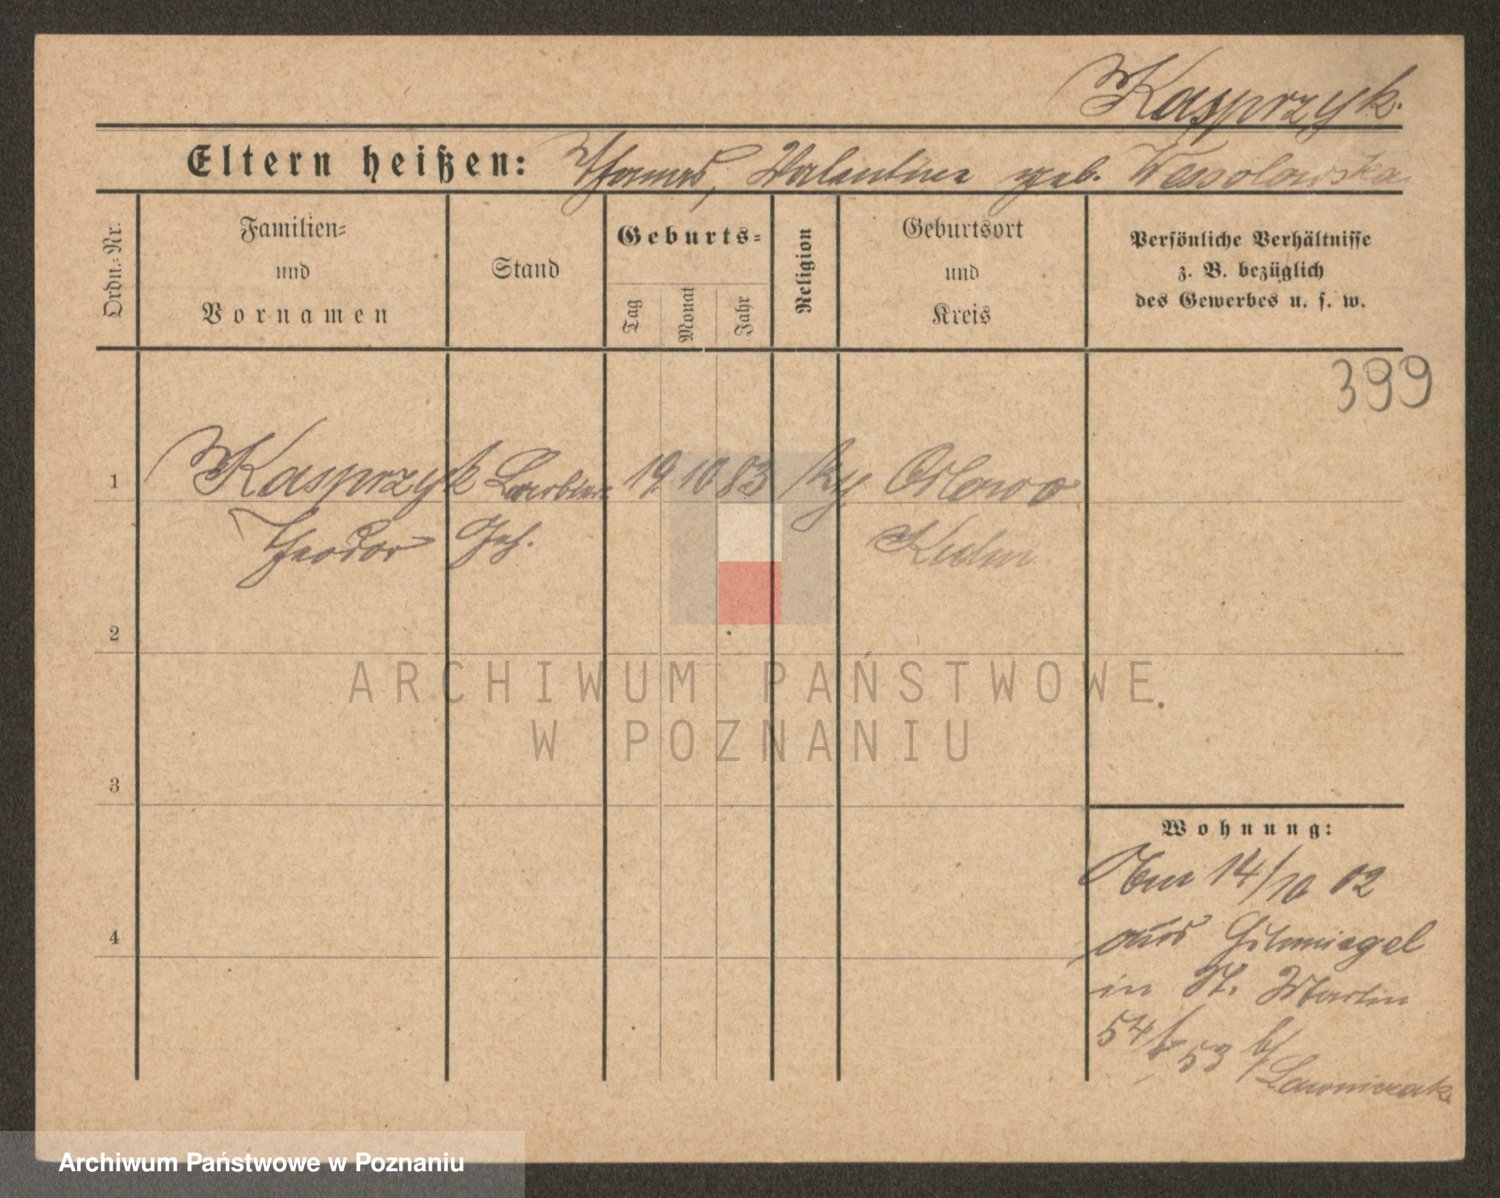 Kasprzyk.
Eltern heißen: Thomas, Valentine geb. Wessolowska
Ordn.-Nr.
Familien- und Vornamen
Stand
Geburts-
Tag
Monat
Jahr
Religion
Geburtsort und Kreis
Persönliche Verhältnisse z. B. bezüglich des Gewerbes u. s. w.
399
1 Kasprzyk 19 10 83
Theodor
2
3
4
Wohnung:
14/10 02
aus
in St. Martin
54/53 b/
Lawniczak
ARCHIWUM PAŃSTWOWE
W POZNANIU
Archiwum Państwowe w Poznaniu